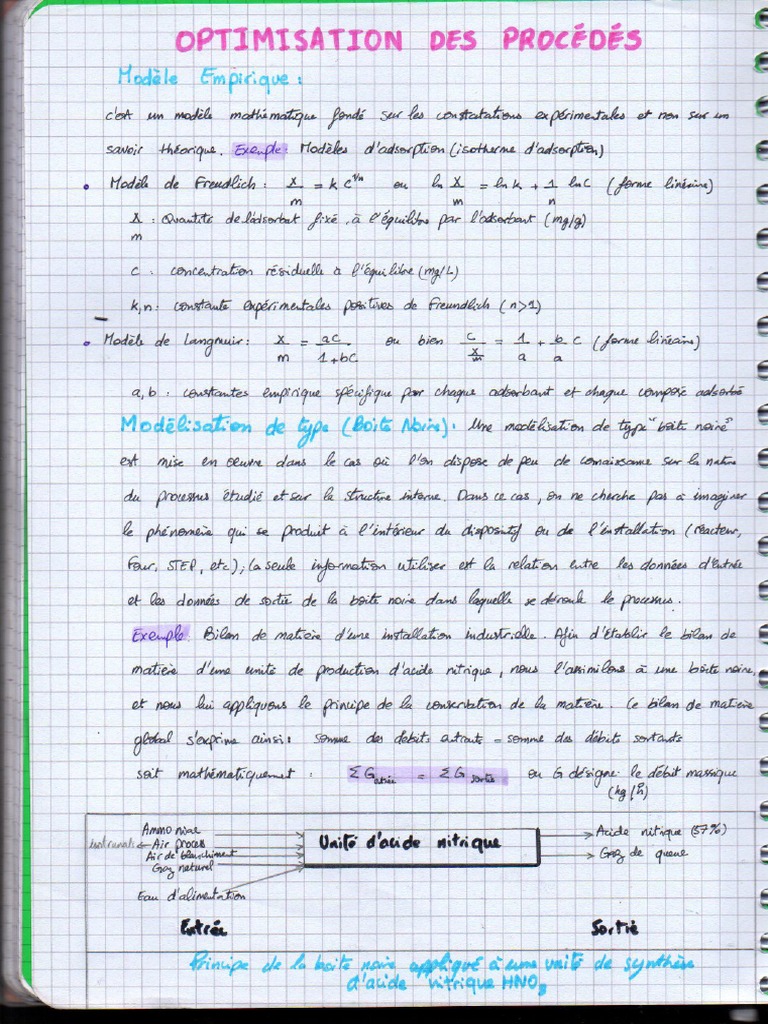 OPTIMISATION DES PROCÉDÉS
Modèle Empirique :
c'est un modèle mathématique fondé sur les constatations expérimentales et non sur un
savoir théorique. Exemple : Modèles d'adsorption (isotherme d'adsorption)
• Modèle de Freudlich : x/m = k c^1/n ou ln x/m = ln k + 1/n ln C (forme linéaire)
x/m : Quantité de l'adsorbat fixé, à l'équilibre par l'adsorbant (mg/g)
c : concentration résiduelle à l'équilibre (mg/L)
k, n : constante expérimentales positives de Freundlich (n>1)
• Modèle de Langmuir : x/m = ac/1+bC ou bien c/(x/m) = 1/a + b/a c (forme linéaire)
a, b : constantes empirique spécifique par chaque adsorbant et chaque composé adsorbé
Modélisation de type (Boite Noire) : Une modélisation de type "boite noire"
est mise en oeuvre dans le cas où l'on dispose de peu de connaissance sur la nature
du processus étudié et sur la structure interne. Dans ce cas, on ne cherche pas à imaginer
le phénomène qui se produit à l'intérieur du dispositif ou de l'installation (réacteur,
Four, STEP, etc) ; la seule information utiliser est la relation entre les données d'entrée
et les données de sortie de la boite noire dans laquelle se déroule le processus.
Exemple : Bilan de matière d'une installation industrielle. Afin d'établir le bilan de
matière d'une unité de production d'acide nitrique, nous l'assimilons à une boite noire,
et nous lui appliquons le principe de la conservation de la matière. Ce bilan de matière
global s'exprime ainsi : somme des débits entrants = somme des débits sortants
soit mathématiquement : ΣG entrée = ΣG sortie ou G désigne le débit massique
(kg/h)
Ammoniac
Air process
Air de blanchiment
Gaz naturel
Eau d'alimentation
Unité d'acide nitrique
Acide nitrique (57%)
Gaz de queue
Entrée
Sortie
Principe de la boite noire appliqué à une unité de synthèse
d'acide nitrique HNO3